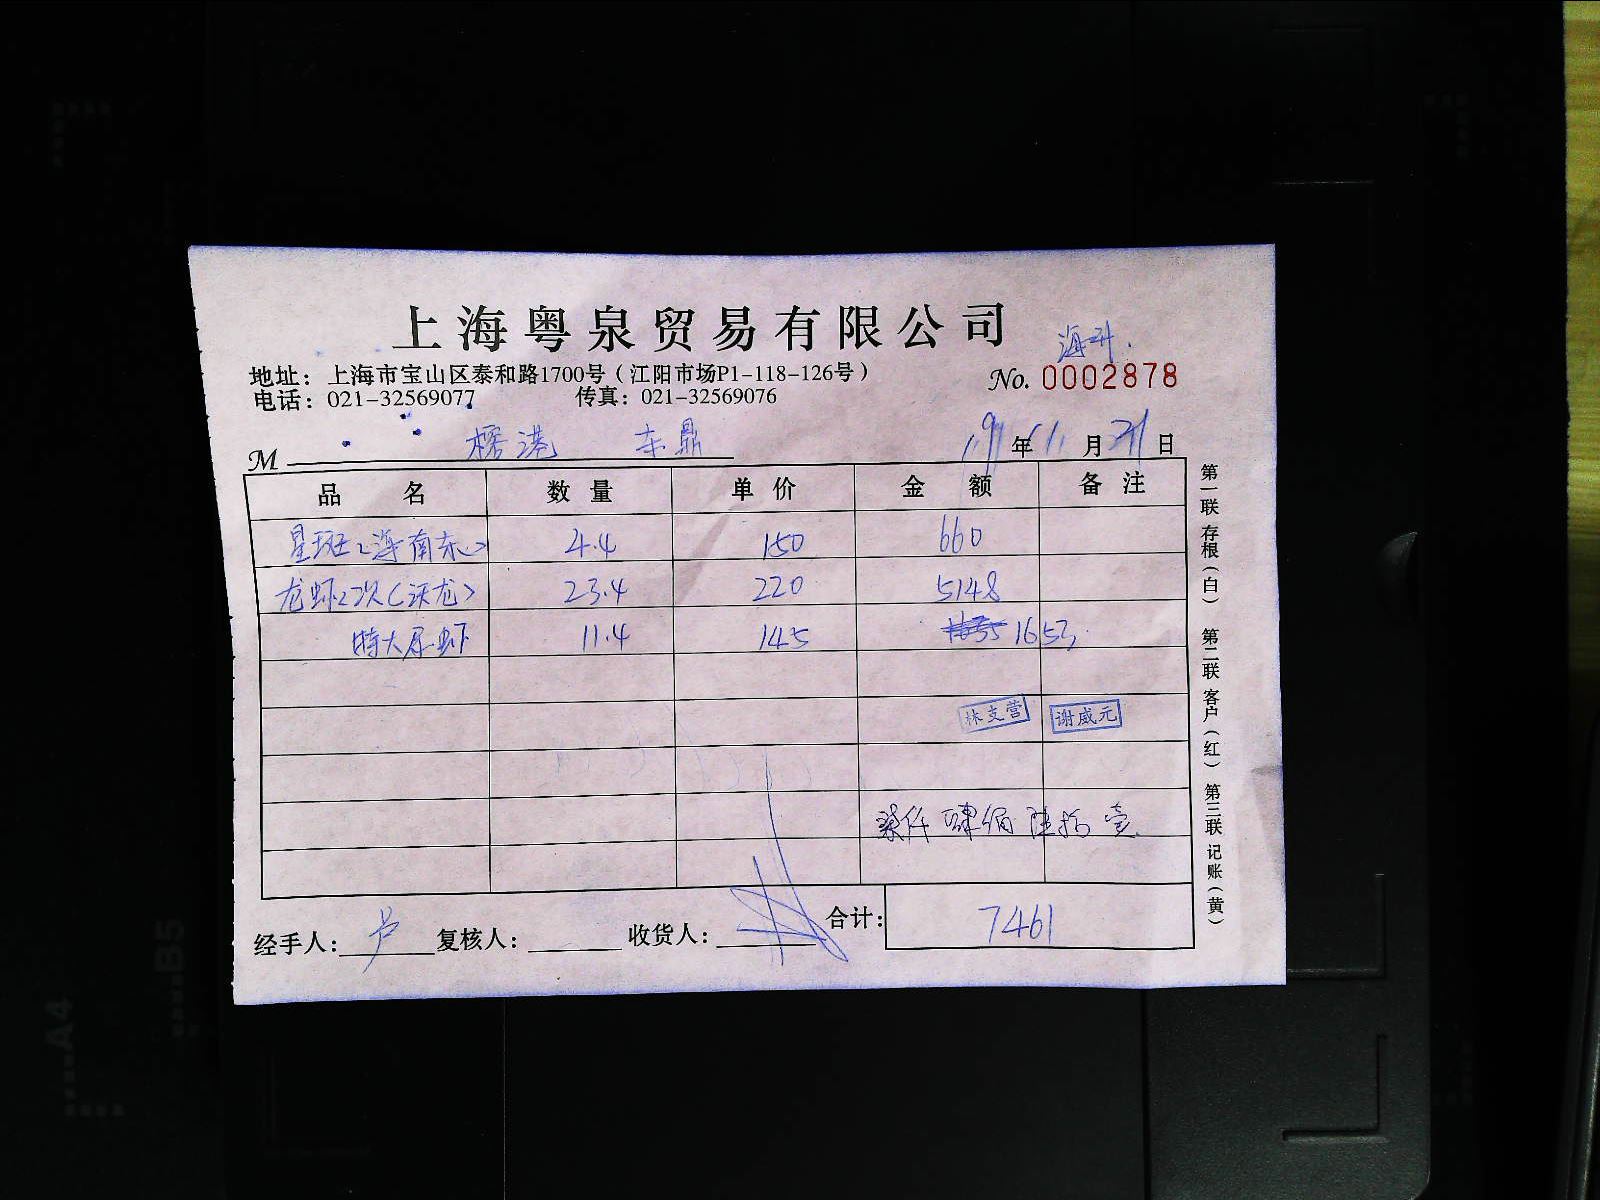 上海粤泉贸易有限公司
海斗.
地址：上海市宝山区泰和路1700号（江阳市场P1-118-126号）
No. 0002878
电话：021-32569077 传真：021-32569076
M 榕港 东鼎 年 11 月 21 日
品名 数量 单价 金额 备注
星斑(海南东) 4.4 150 660
龙虾2次(沃龙) 23.4 220 5148
特大尿虾 11.4 145 1653
林支营 谢威元
柒仟肆佰陆拾壹
经手人：卢 复核人： 收货人： 合计：7461
第一联 存根（白） 第二联 客户（红） 第三联 记账（黄）
B5
A4